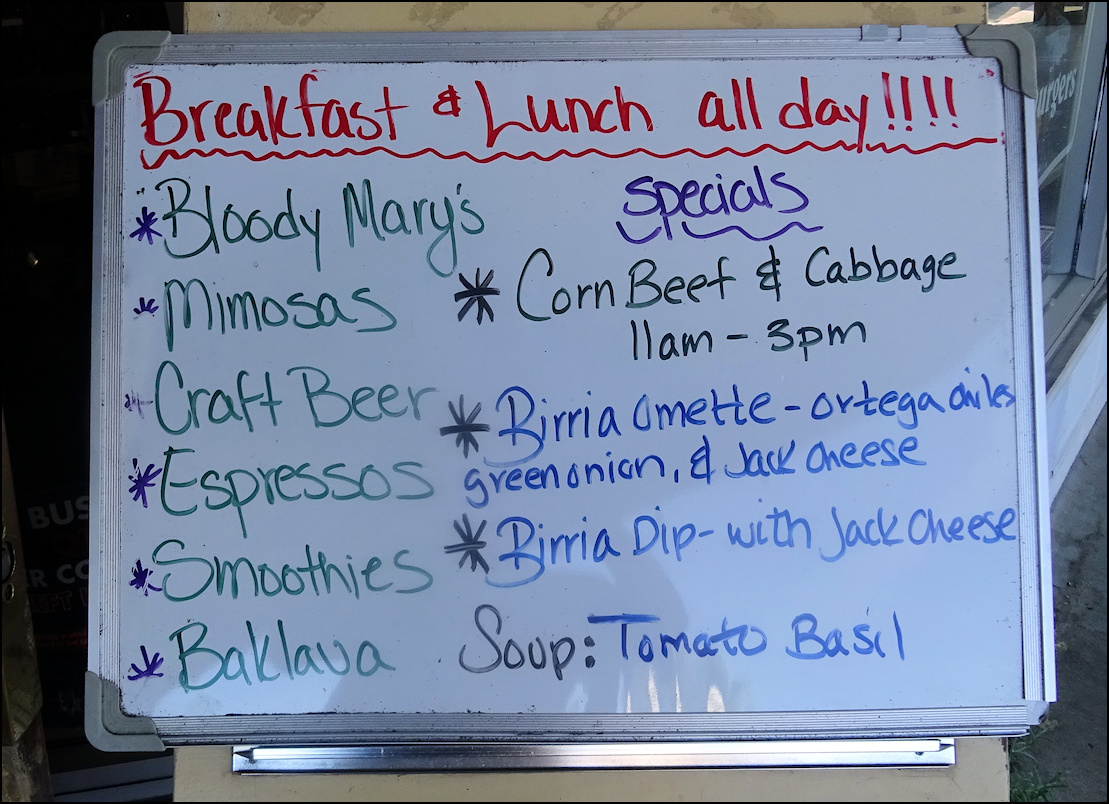 Breakfast & Lunch all day!!!!
* Bloody Mary's
* Mimosas
* Craft Beer
* Espressos
* Smoothies
* Baklava
Specials
* Corn Beef & Cabbage
11am - 3pm
* Birria Omette - ortega chiles
green onion, & Jack Cheese
* Birria Dip - with Jack Cheese
Soup: Tomato Basil
urgers
BUS
R CO